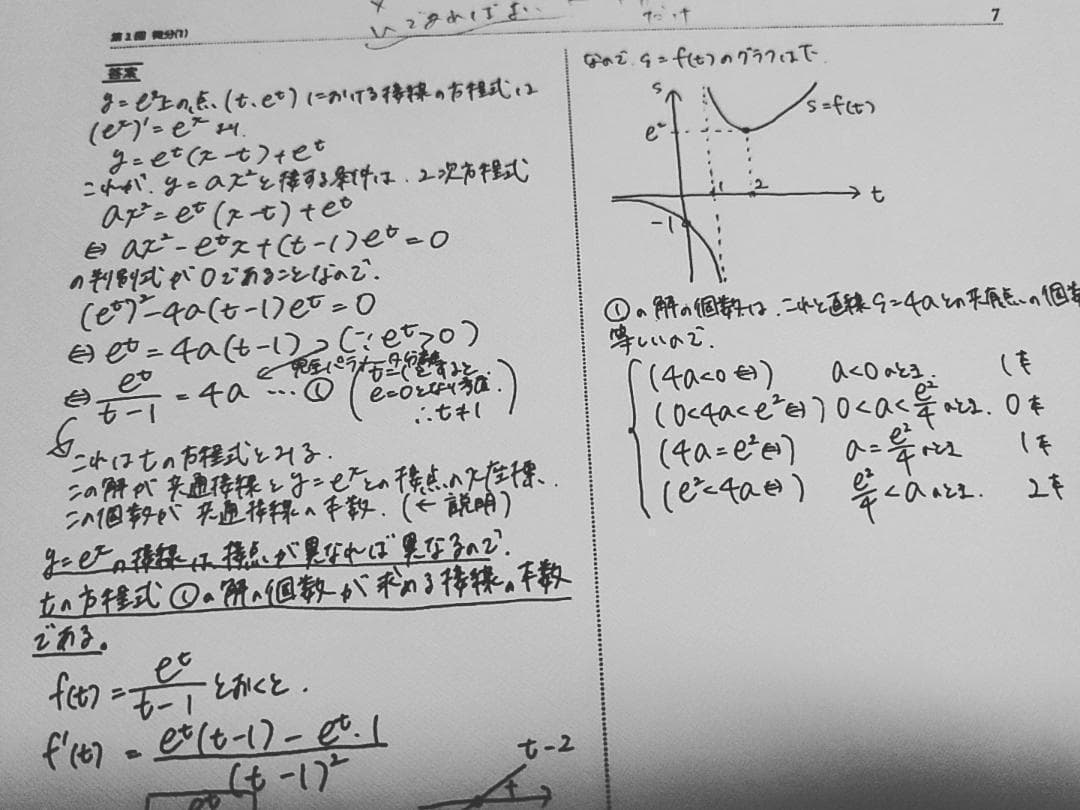 第1回 微分(1)
であればよい
だけ
7
答案
y=eˣ上の点(t, eᵗ)における接線の方程式は
(eˣ)'=eˣより
y=eᵗ(x-t)+eᵗ
これが、y=ax²と接する条件は、2次方程式
ax²=eᵗ(x-t)+eᵗ
⇔ ax²-eᵗx+(t-1)eᵗ=0
の判別式が0であることなので、
(eᵗ)²-4a(t-1)eᵗ=0
⇔ eᵗ=4a(t-1) (∵eᵗ>0)
⇔ eᵗ/(t-1) = 4a … ①
(t=1とすると
e=0となり矛盾
∴t≠1)
これはtの方程式とみる。
この解が共通接線とy=eˣとの接点のx座標、
この個数が共通接線の本数。(←説明)
y=eˣの接線は接点が異なれば異なるので、
tの方程式①の解の個数が求める接線の本数
である。
f(t)=eᵗ/(t-1) とおくと、
f'(t) = (eᵗ(t-1)-eᵗ・1)/(t-1)²
eᵗ
t-2
+
なので、s=f(t)のグラフは下
s
s=f(t)
e²
1
2
t
-1
①の解の個数は、これと直線s=4aとの共有点の個数
等しいので、
(4a<0⇔) a<0のとき、1本
(0<4a<e²⇔) 0<a<e²/4のとき、0本
(4a=e²⇔) a=e²/4のとき、1本
(e²<4a⇔) e²/4<aのとき、2本